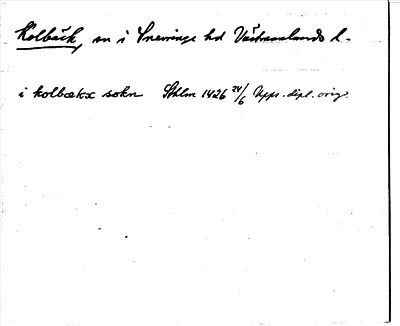 Kolbäck, sn i Snevringe hd Västmanlands l.
i kolbækx sokn Sthlm 1426 24/6 Upps. dipl. orig.